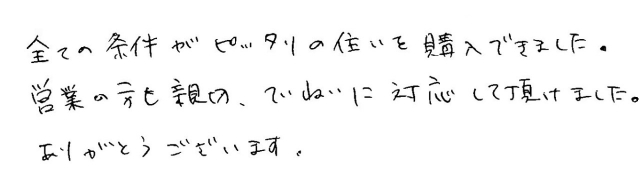 全ての条件がピッタリの住いを購入できました。
営業の方も親切、ていねいに対応して頂けました。
ありがとうございます。